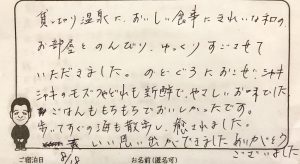 真っ昼り温泉に、おいしい食事にきれいな和の
お部屋とのんびり、ゆっくりすごさせて
いただきました。のどぐろにおこぜ、シャキ
シャキのモズクやどれも新鮮で、やさしいお味でした
ごはんももちもちでおいしかったです。
歩いてすぐの海も散歩し、癒されました。
いい思い出ができました ありがとう
ございました
ご宿泊日 8/8 お名前(匿名可)